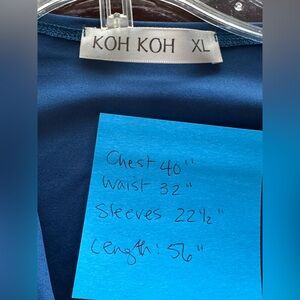 KOH KOH XL
Chest 40"
Waist 32"
Sleeves 22½"
Length: 56"